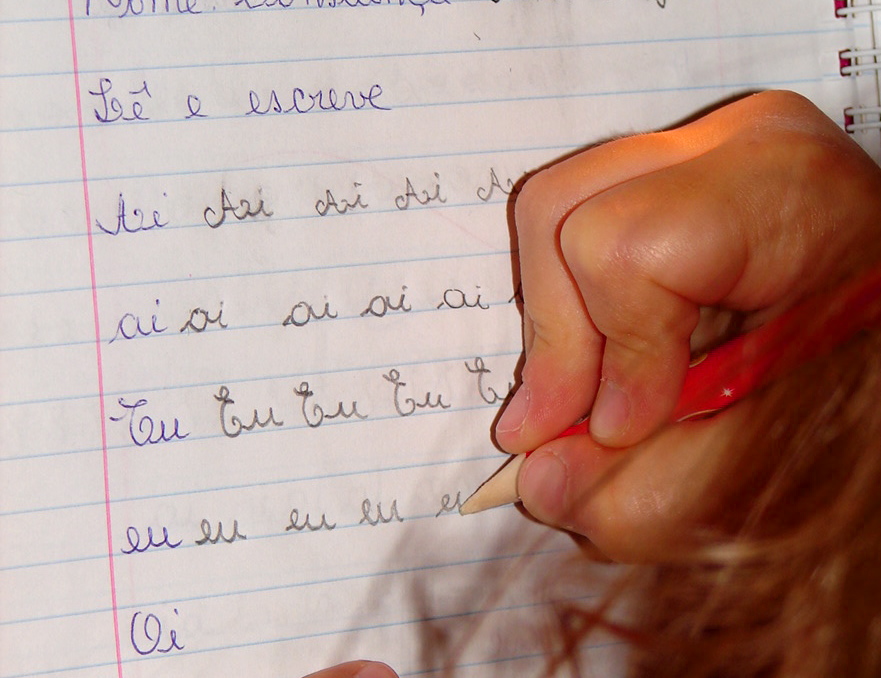 Nome: Constança
Lê e escreve
Ai Ai Ai Ai A
ai ai ai ai ai
Eu Eu Eu Eu Eu
eu eu eu eu eu
Oi